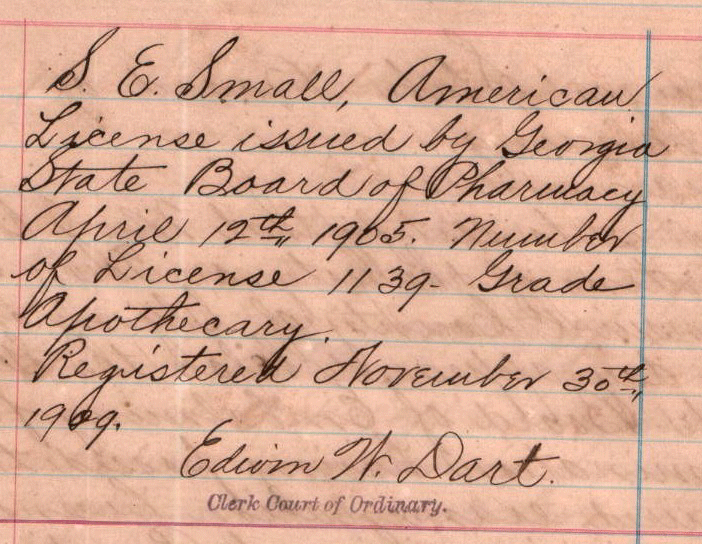 S. E. Small, American
License issued by Georgia
State Board of Pharmacy
April 12th, 1905. Number
of License 1139- Grade
Apothecary.
Registered November 30th,
1909.
Edwin W. Dart.
Clerk Court of Ordinary.